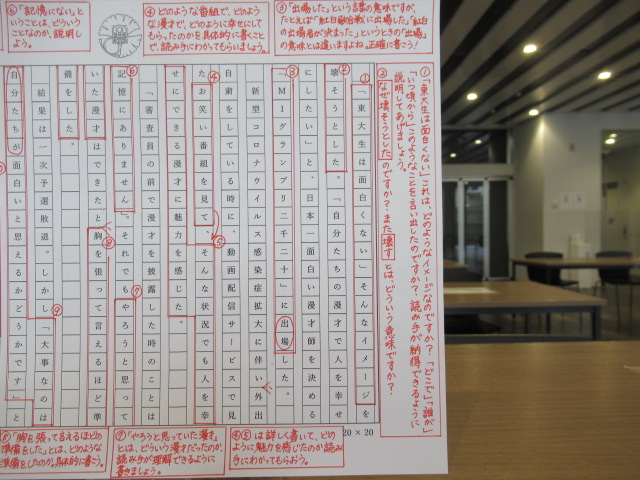 ①「東大生は面白くない」これは、どのようなイメージなのですか?「どこで」「誰が」
「いつ頃から」このようなことを言い出したのですか?読み手が納得できるように
説明してあげましょう。
②なぜ壊そうとしたのですか?また壊すとは、どういう意味ですか?
③「出場した」という言葉の意味ですが、
たとえば「紅白歌合戦に出場した」「紅白
の出場者が決まった」というときの「出場」
の意味とは違いますよね。正確に書こう!
④どのような番組で、どのよう
な漫才で、どのように幸せにして
もらったのかを具体的に書くこと
で、読み手にわかってもらいましょう。
⑥「記憶にない」と
いうことは、どういう
ことなのか、説明し
よう。
①「東大生は面白くない」そんなイメージを
②壊そうとした。「自分たちの漫才で人を幸せ
にしたい」と、日本一面白い漫才師を決める
③「M1グランプリ二千二十」に出場した。
新型コロナウイルス感染症拡大に伴い外出
自粛をしている時に、動画配信サービスで見
④たお笑い番組を見て、⑤そんな状況でも人を幸
せにできる漫才に魅力を感じた。
「審査員の前で漫才を披露した時のことは
⑥記憶にありません」。それでも⑦やろうと思って
いた漫才はできたと⑧胸を張って言えるほど準
備をした。
結果は一次予選敗退。しかし⑨「大事なのは
自分たちが面白いと思えるかどうかです」と
20×20
④⑤は詳しく書いて、どの
ように魅力を感じたのか読み
手にわかってもらおう。
⑦「やろうと思っていた漫才」
とは、どういう漫才だったのか、
読み手が理解できるように
書きましょう。
⑧「胸を張って言えるほどの
準備をした」とは、どのような
準備をしたのか。具体的に書こう。